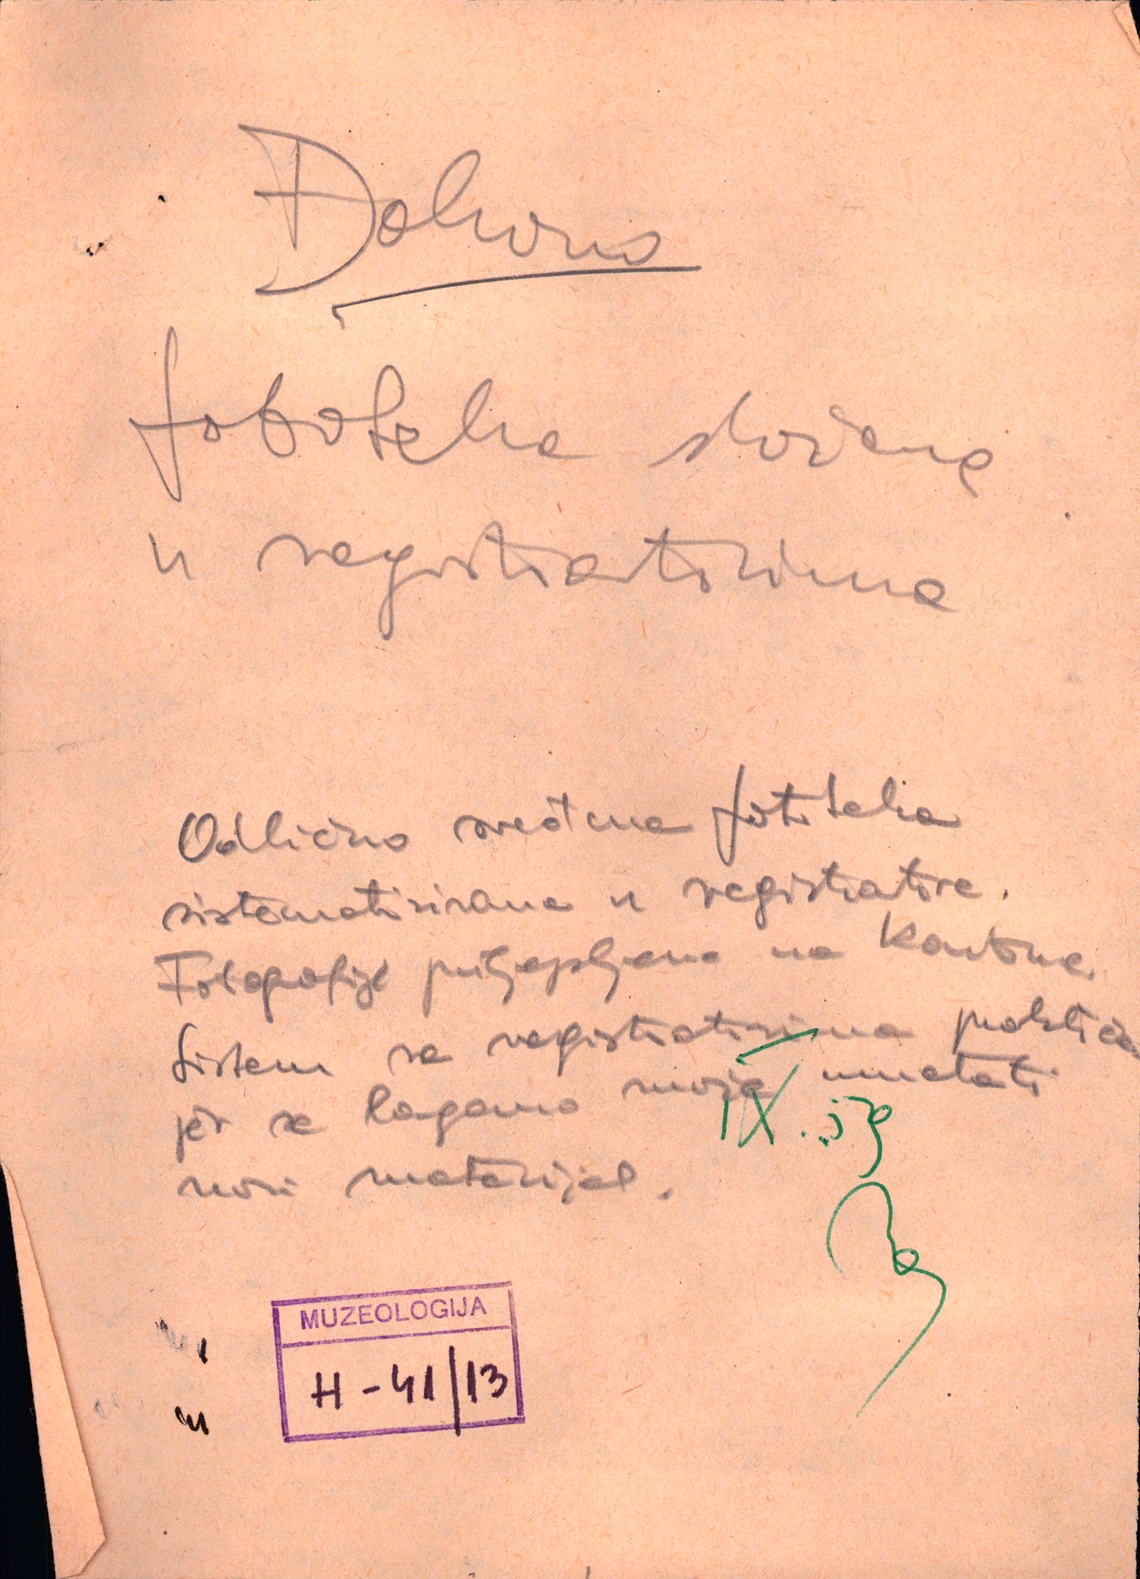 Đakovo
fototeka složena
u registratorima
Odlično sređena fototeka
sistematizirana u registratore.
Fotografije priljepljene na kartone.
Sistem sa registratorima praktičan
jer se lagano može umetati
novi materijal.
IX. 59
MUZEOLOGIJA
H-41/13